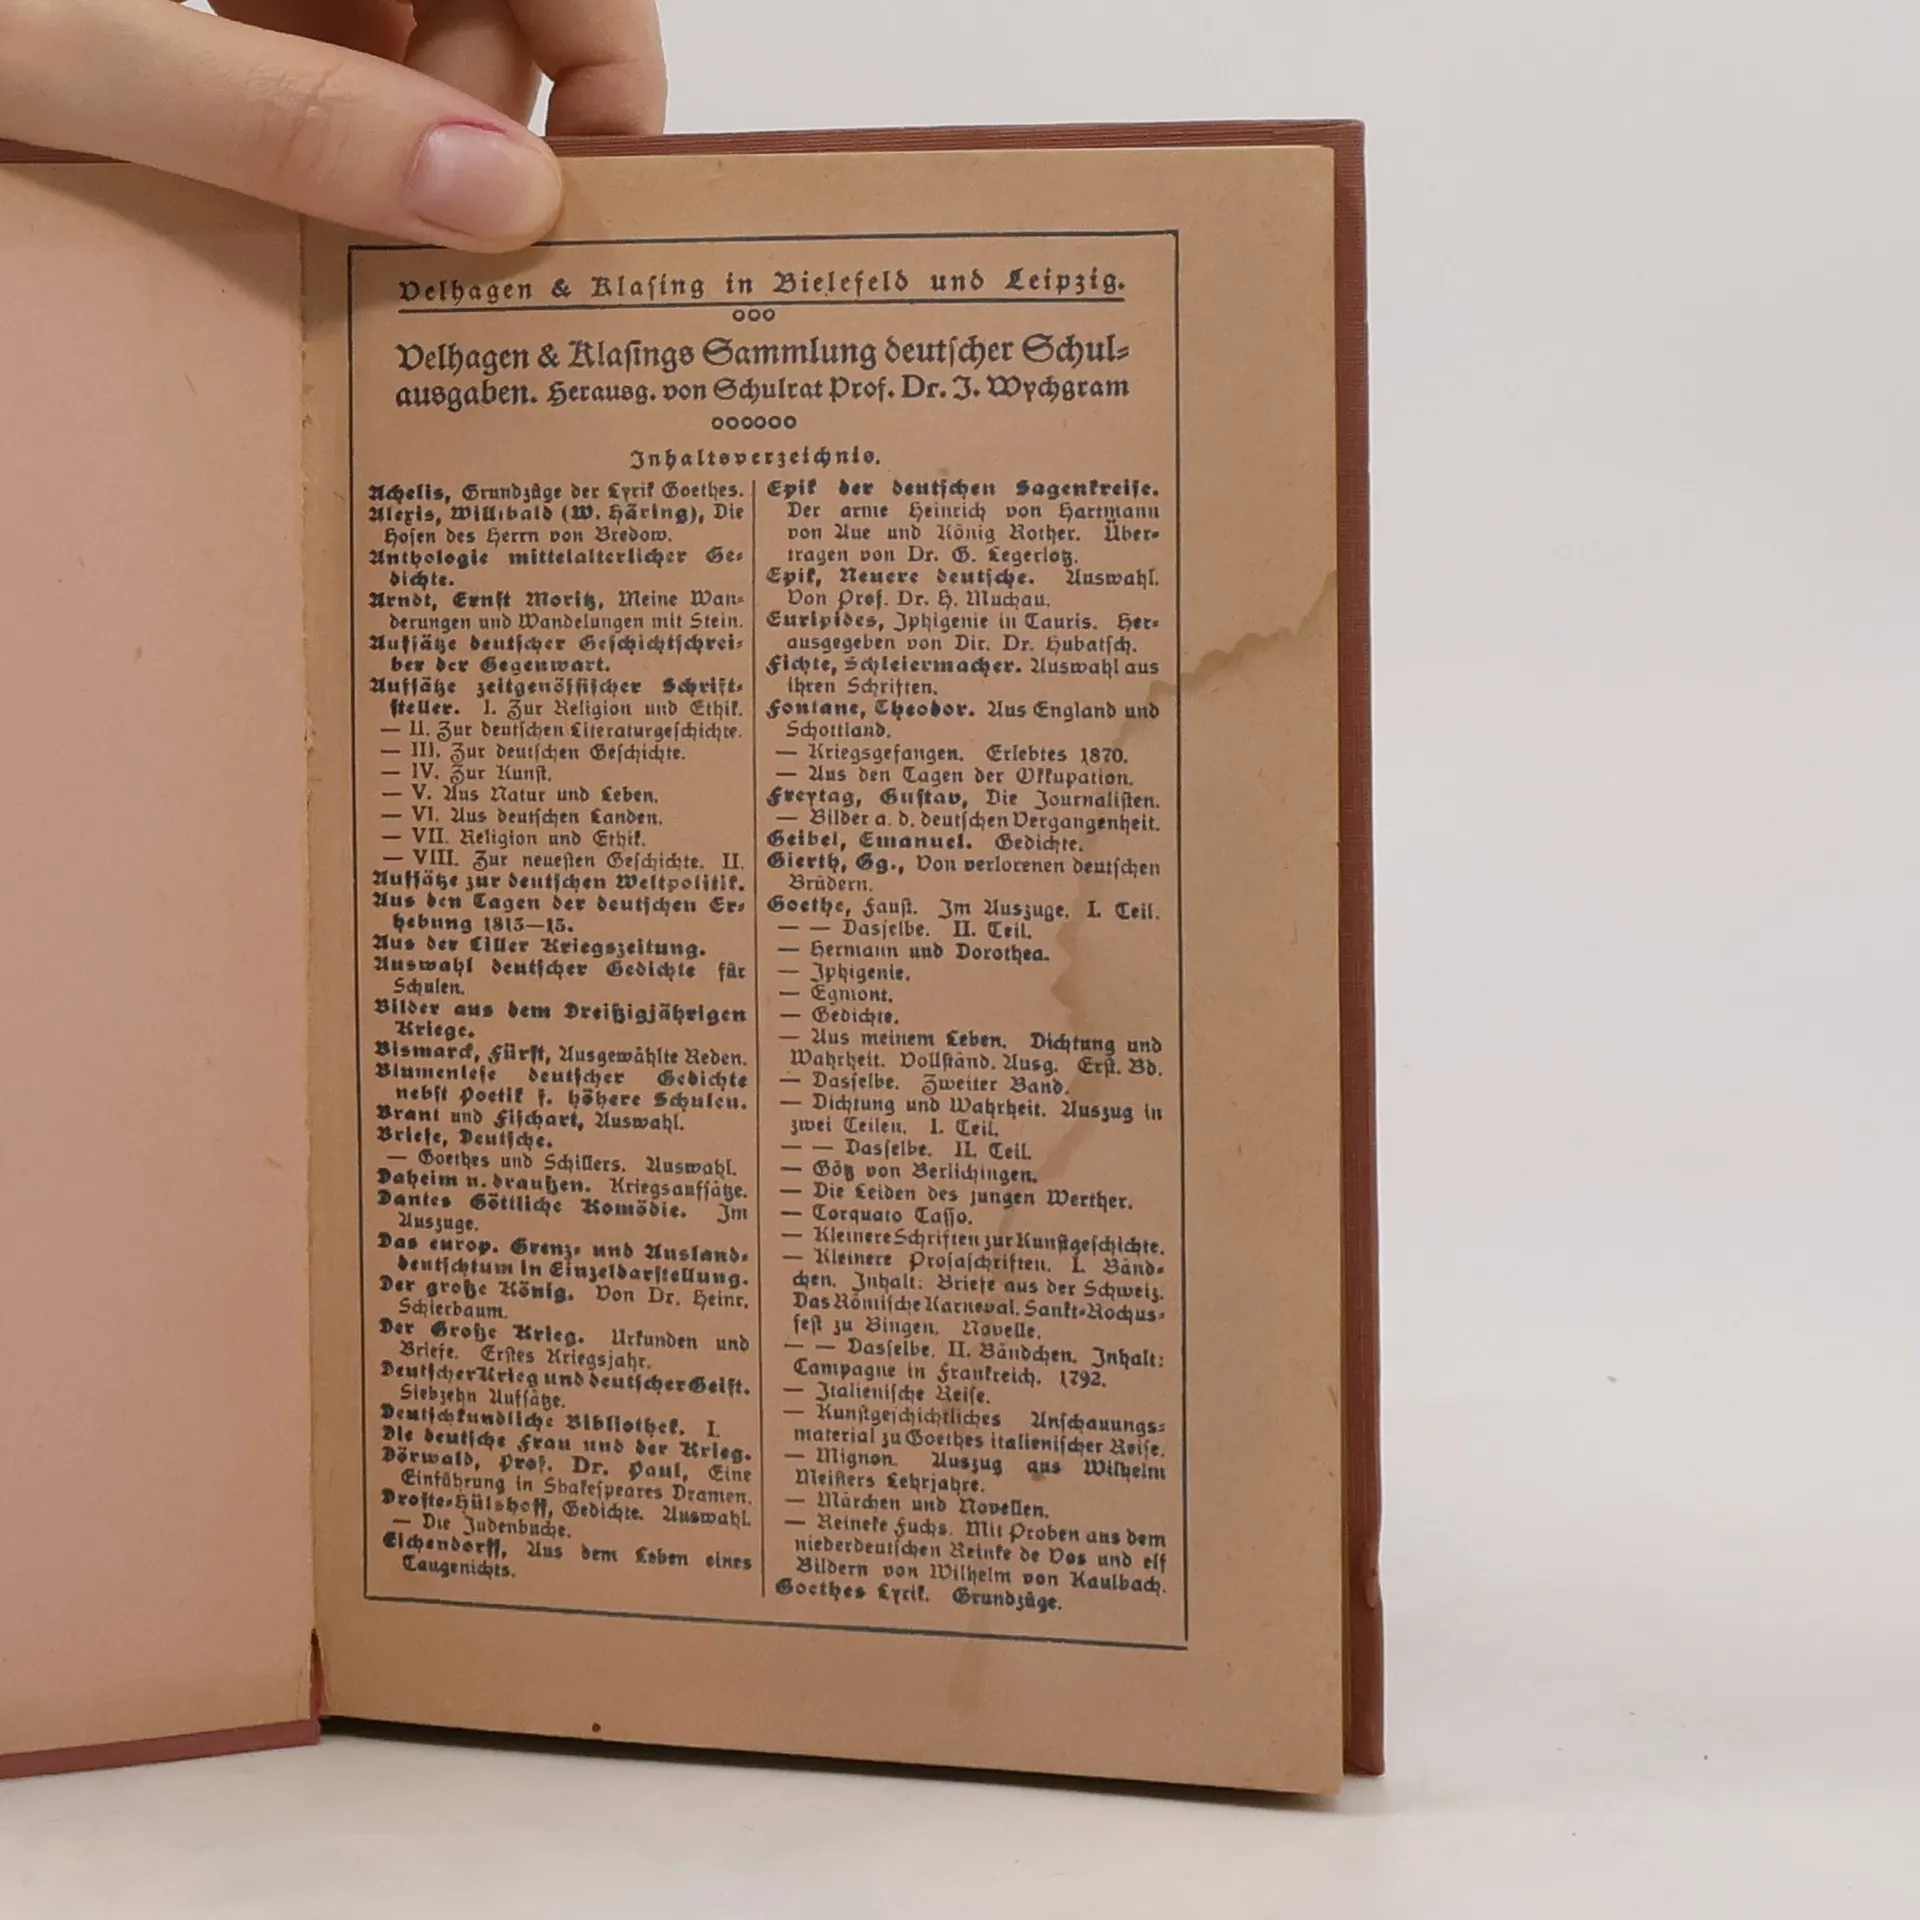 Velhagen & Klasing in Bielefeld und Leipzig.
Velhagen & Klasings Sammlung deutscher Schul-
ausgaben. Herausg. von Schulrat Prof. Dr. J. Wychgram
Inhaltsverzeichnis.
Achelis, Grundzüge der Lyrik Goethes.
Alexis, Willibald (W. Häring), Die
Hosen des Herrn von Bredow.
Anthologie mittelalterlicher Ge-
dichte.
Arndt, Ernst Moritz, Meine Wan-
derungen und Wandelungen mit Stein.
Aufsätze deutscher Geschichtschrei-
ber der Gegenwart.
Aufsätze zeitgenössischer Schrift-
steller. I. Zur Religion und Ethik.
— II. Zur deutschen Literaturgeschichte.
— III. Zur deutschen Geschichte.
— IV. Zur Kunst.
— V. Aus Natur und Leben.
— VI. Aus deutschen Landen.
— VII. Religion und Ethik.
— VIII. Zur neuesten Geschichte. II.
Aufsätze zur deutschen Weltpolitik.
Aus den Tagen der deutschen Er-
hebung 1813—15.
Aus der Liller Kriegszeitung.
Auswahl deutscher Gedichte für
Schulen.
Bilder aus dem Dreißigjährigen
Kriege.
Bismarck, Fürst, Ausgewählte Reden.
Blumenlese deutscher Gedichte
nebst Poetik f. höhere Schulen.
Brant und Fischart, Auswahl.
Briefe, Deutsche.
— Goethes und Schillers. Auswahl.
Daheim u. draußen. Kriegsaufsätze.
Dantes Göttliche Komödie. Im
Auszuge.
Das europ. Grenz- und Ausland-
deutschtum in Einzeldarstellung.
Der große König. Von Dr. Heinr.
Schierbaum.
Der Große Krieg. Urkunden und
Briefe. Erstes Kriegsjahr.
Deutscher Krieg und deutscher Geist.
Siebzehn Aufsätze.
Deutschkundliche Bibliothek. I.
Die deutsche Frau und der Krieg.
Dörwald, Prof. Dr. Paul, Eine
Einführung in Shakespeares Dramen.
Droste-Hülshoff, Gedichte. Auswahl.
— Die Judenbuche.
Eichendorff, Aus dem Leben eines
Taugenichts.
Epik der deutschen Sagenkreise.
Der arme Heinrich von Hartmann
von Aue und König Rother. Über-
tragen von Dr. G. Legerlotz.
Epik, Neuere deutsche. Auswahl.
Von Prof. Dr. H. Muchau.
Euripides, Iphigenie in Tauris. Her-
ausgegeben von Dir. Dr. Hubatsch.
Fichte, Schleiermacher. Auswahl aus
ihren Schriften.
Fontane, Theodor. Aus England und
Schottland.
— Kriegsgefangen. Erlebtes 1870.
— Aus den Tagen der Okkupation.
Freytag, Gustav, Die Journalisten.
— Bilder a. d. deutschen Vergangenheit.
Geibel, Emanuel. Gedichte.
Gierth, Gg., Von verlorenen deutschen
Brüdern.
Goethe, Faust. Im Auszuge. I. Teil.
— — Dasselbe. II. Teil.
— Hermann und Dorothea.
— Iphigenie.
— Egmont.
— Gedichte.
— Aus meinem Leben. Dichtung und
Wahrheit. Vollständ. Ausg. Erst. Bd.
— Dasselbe. Zweiter Band.
— Dichtung und Wahrheit. Auszug in
zwei Teilen. I. Teil.
— — Dasselbe. II. Teil.
— Götz von Berlichingen.
— Die Leiden des jungen Werther.
— Torquato Tasso.
— Kleinere Schriften zur Kunstgeschichte.
— Kleinere Prosaschriften. I. Bänd-
chen. Inhalt: Briefe aus der Schweiz.
Das Römische Karneval. Sankt-Rochus-
fest zu Bingen. Novelle.
— — Dasselbe. II. Bändchen. Inhalt:
Campagne in Frankreich. 1792.
— Italienische Reise.
— Kunstgeschichtliches Anschauungs-
material zu Goethes italienischer Reise.
— Mignon. Auszug aus Wilhelm
Meisters Lehrjahre.
— Märchen und Novellen.
— Reineke Fuchs. Mit Proben aus dem
niederdeutschen Reinke de Vos und elf
Bildern von Wilhelm von Kaulbach.
Goethes Lyrik. Grundzüge.